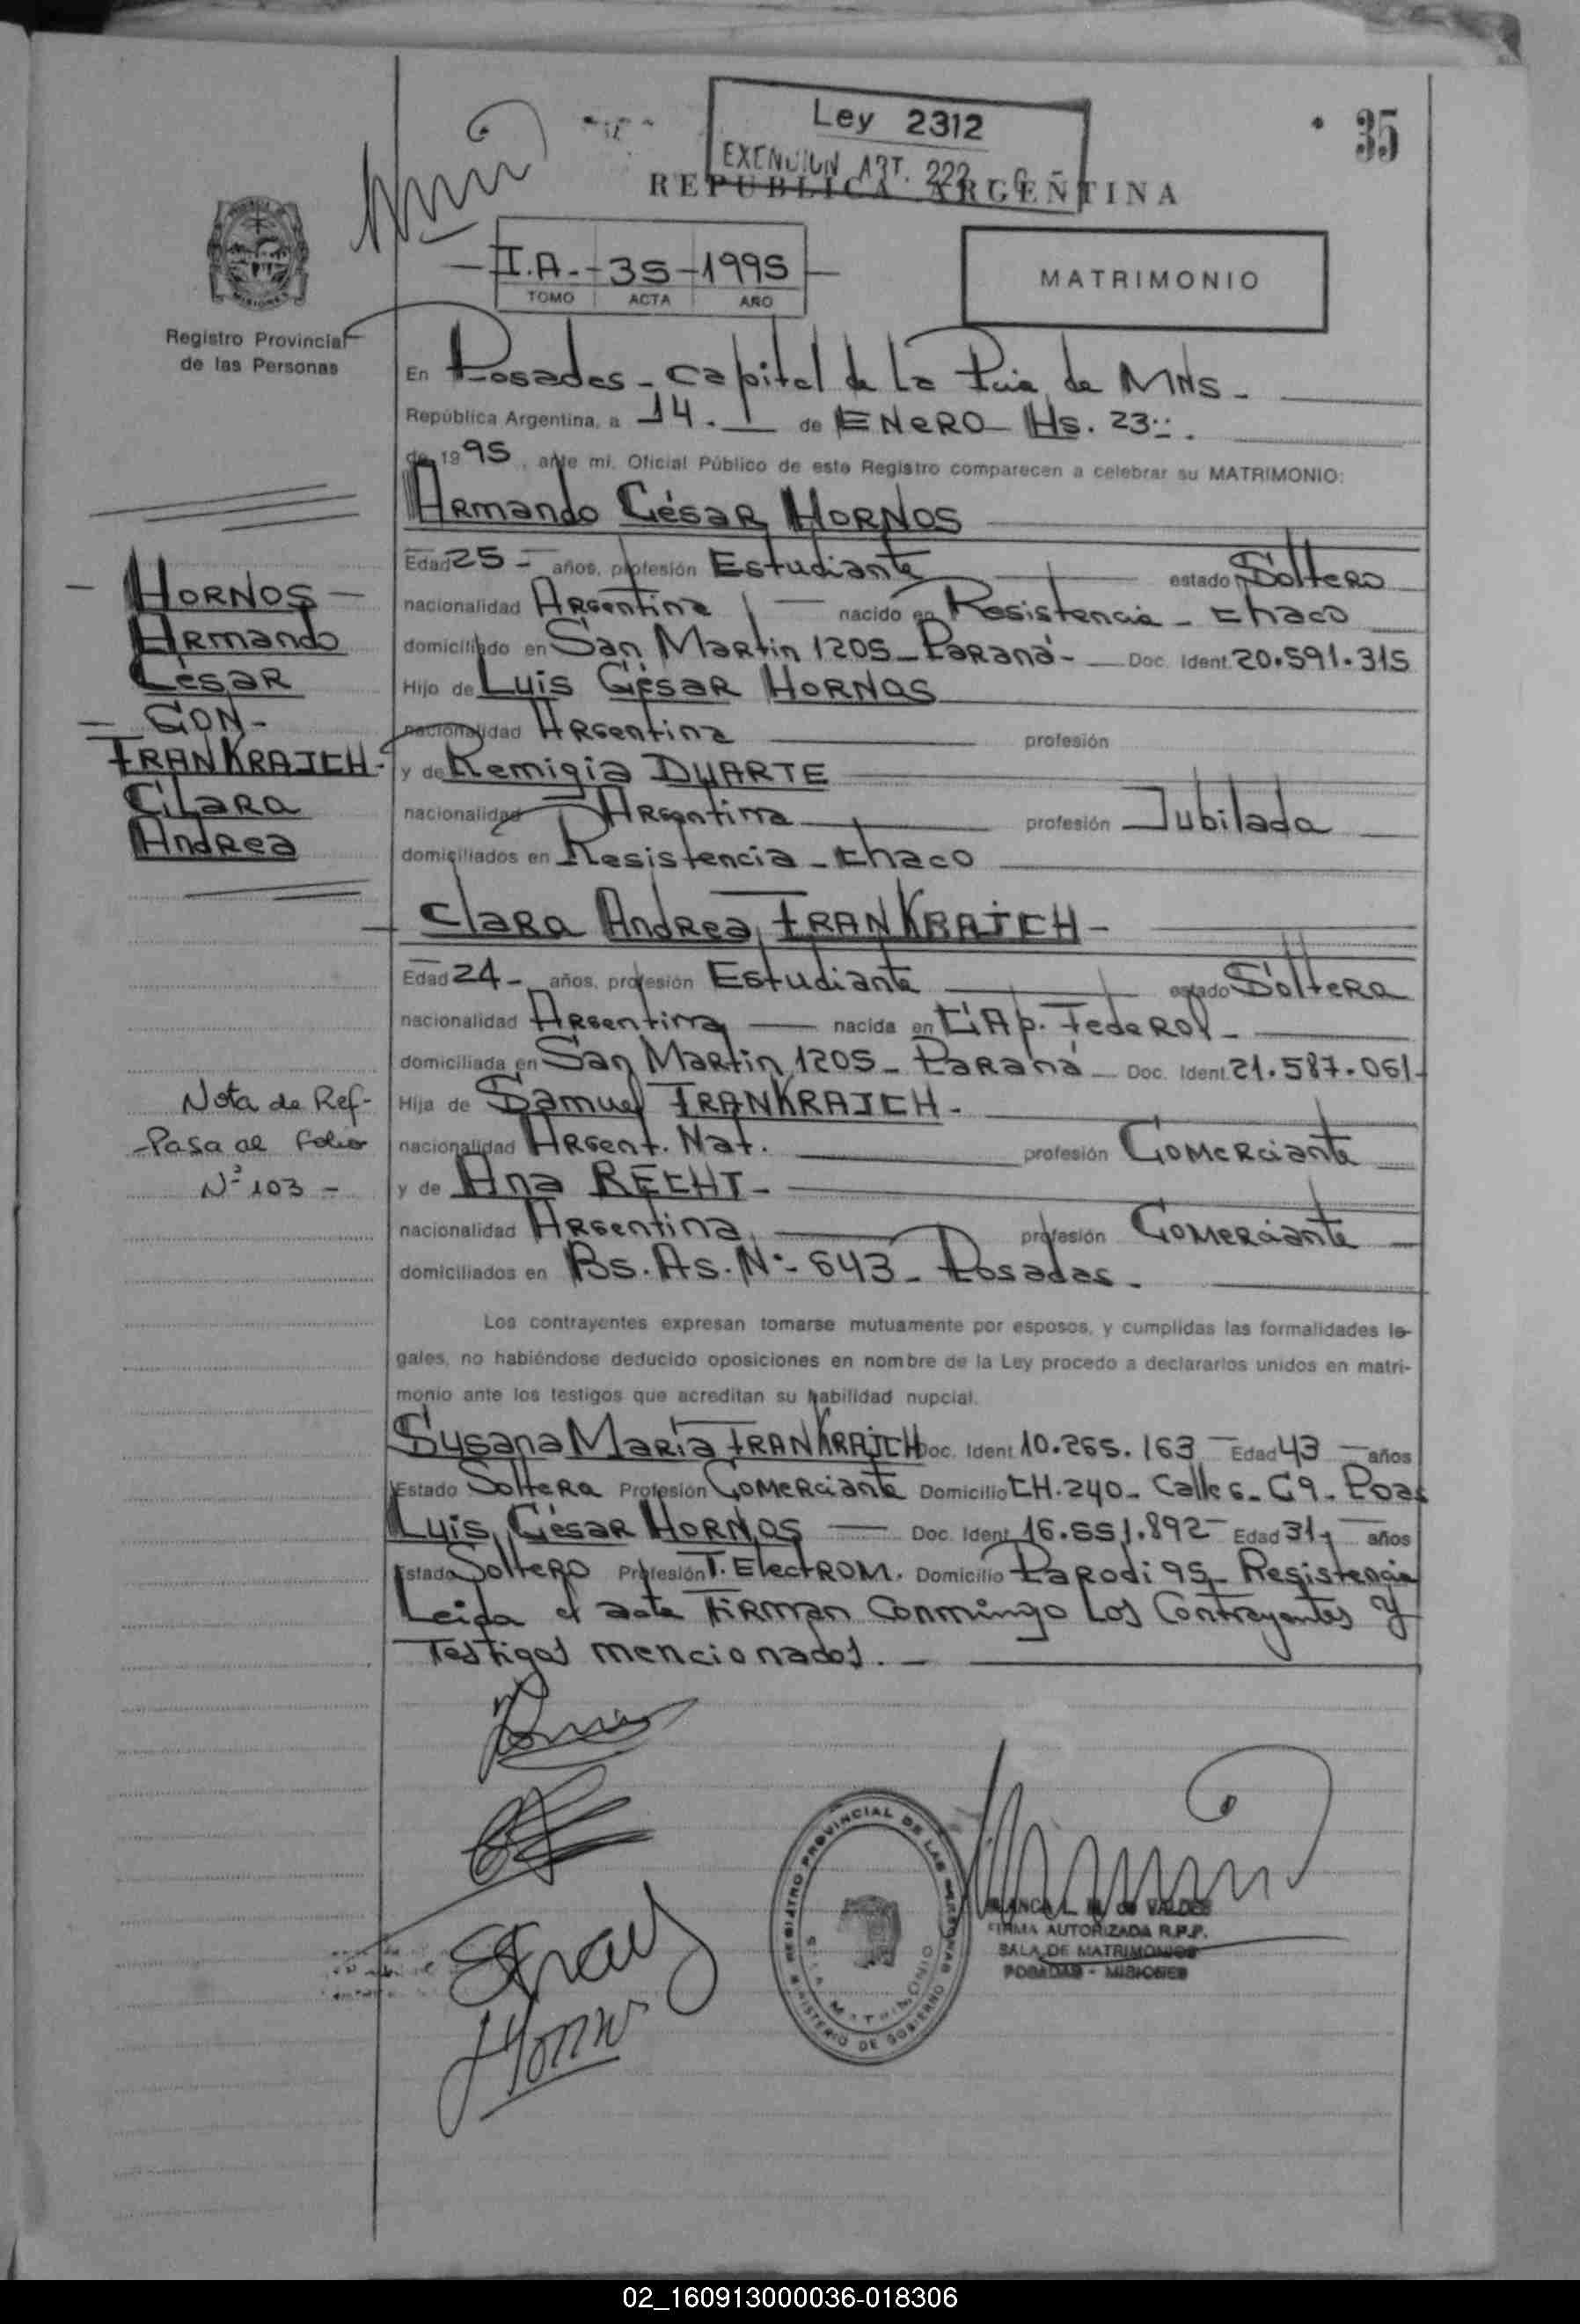 Ley 2312
EXENCION ART. 222
35
REPUBLICA ARGENTINA
I.A. - 35 - 1995
TOMO ACTA AÑO
MATRIMONIO
Registro Provincial
de las Personas
En Posadas - Capital de La Pcia de MNS -
República Argentina, a 14 . - de ENERO Hs. 23
de 1995, ante mi, Oficial Público de este Registro comparecen a celebrar su MATRIMONIO:
Armando César HORNOS
Edad 25 - años, profesión Estudiante estado Soltero
nacionalidad Argentina nacido en Resistencia - Chaco
domiciliado en San Martin 1205 - Paraná - Doc. Ident. 20.591.315
Hijo de Luis César HORNOS
nacionalidad Argentina profesión
y de Remigia DUARTE
nacionalidad Argentina profesión Jubilada
domiciliados en Resistencia - Chaco
- HORNOS -
Armando
César
- CON -
FRANKRAJCH -
Clara
Andrea
Clara Andrea FRANKRAJCH -
Edad 24 - años, profesión Estudiante estado Soltera
nacionalidad Argentina nacida en CAp. Federal -
domiciliada en San Martin 1205 - Paraná - Doc. Ident. 21.587.061 -
Hija de Samuel FRANKRAJCH -
nacionalidad Argent. Nat. profesión Comerciante
y de Ana RECHT -
nacionalidad Argentina profesión Comerciante
domiciliados en Bs. As. Nº 643 - Posadas -
Nota de Ref -
- Pasa al Folio
Nº 103 -
Los contrayentes expresan tomarse mutuamente por esposos, y cumplidas las formalidades le-
gales, no habiéndose deducido oposiciones en nombre de la Ley procedo a declararlos unidos en matri-
monio ante los testigos que acreditan su habilidad nupcial.
Susana María FRANKRAJCH Doc. Ident. 10.265.163 - Edad 43 - años
Estado Soltera Profesión Comerciante Domicilio CH. 240 - Calle 6 - C9 - Pdas
Luis César HORNOS - Doc. Ident. 16.551.892 - Edad 31 - años
Estado Soltero Profesión T. ElectROM. Domicilio Parodi 95 - Resistencia
Leida el acta Firman Conmingo Los Contrayentes y
Testigos mencionados. -
REGISTRO PROVINCIAL DE LAS PERSONAS
SALA MATRIMONIO
MINISTERIO DE GOBIERNO
BLANCA L. de VALDES
FIRMA AUTORIZADA R.P.P.
SALA DE MATRIMONIOS
POSADAS - MISIONES
02_160913000036-018306